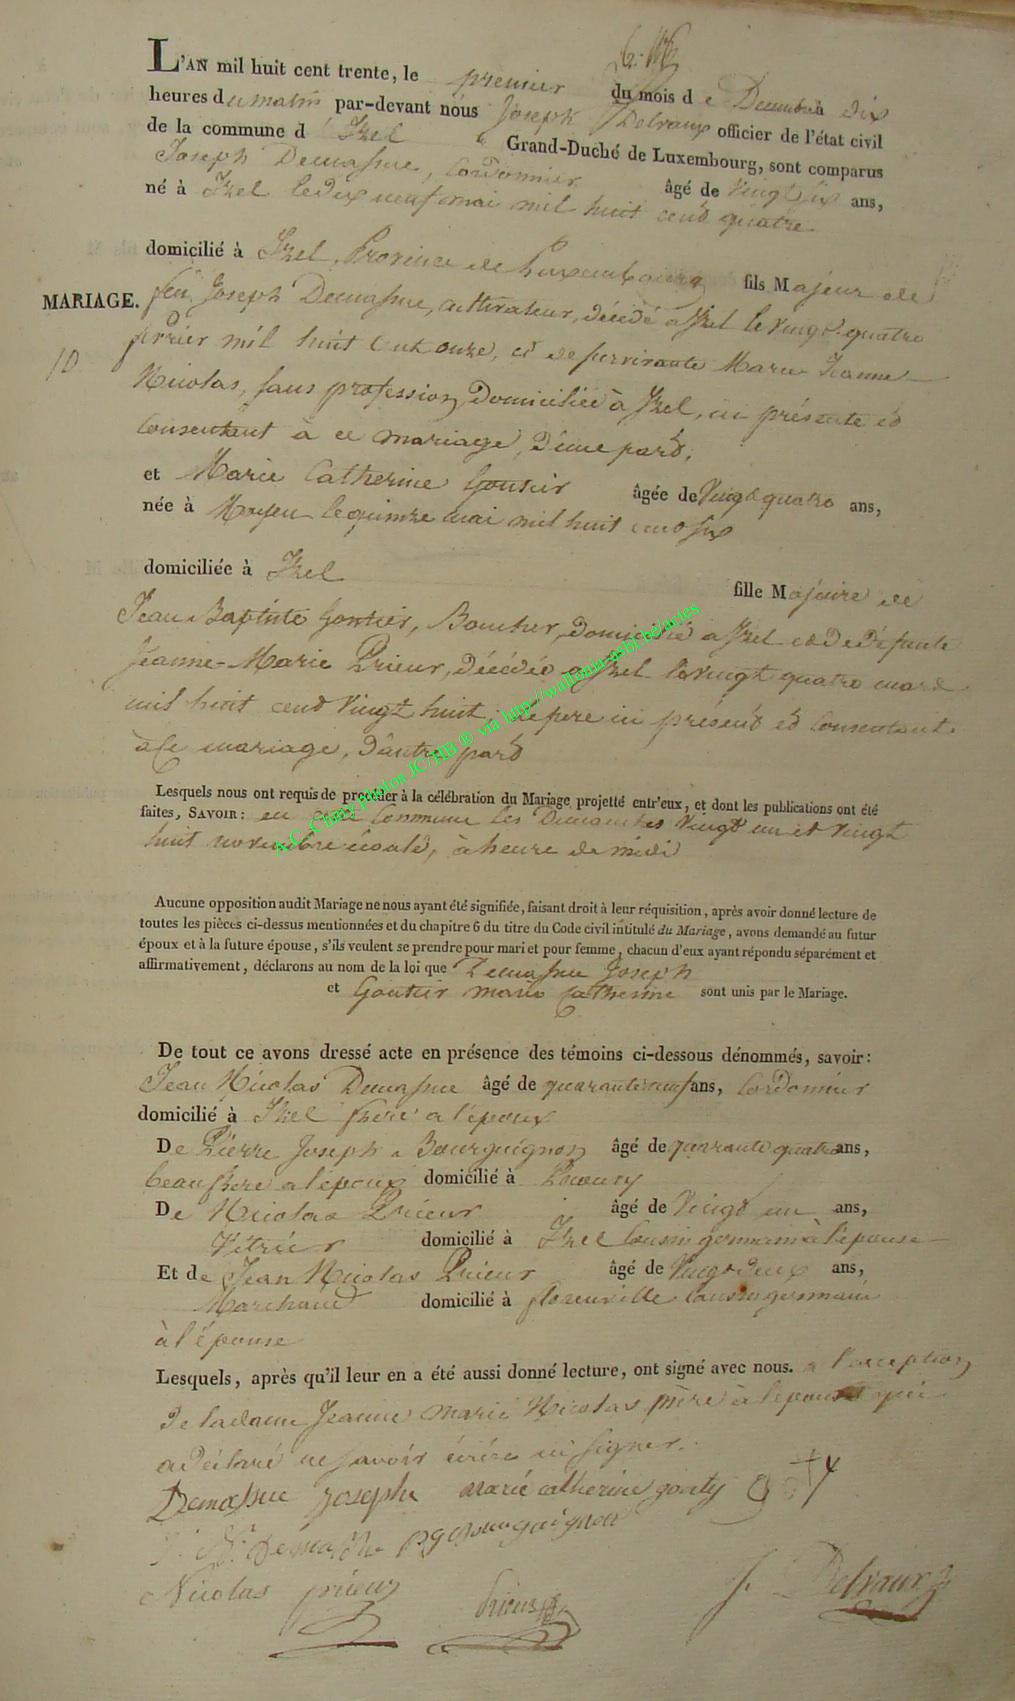 L'AN mil huit cent trente, le premier du mois de Decembre à dix
heures du matin par-devant nous Joseph Delraux officier de l'état civil
de la commune d'Izel Grand-Duché de Luxembourg, sont comparus
Joseph Demasue, Cordonnier âgé de vingt six ans,
né à Izel le dix neuf mai mil huit cent quatre
domicilié à Izel, Province de Luxembourg fils Majeur de
MARIAGE. feu Joseph Demasue, cultivateur, décédé à Izel le vingt quatre
10 février mil huit cent onze, et de survivante Marie Jeanne
Nicolas, sans profession, Domiciliée à Izel, ici présente et
Consentant à ce mariage, d'une part,
et Marie Catherine Goutier âgée de Vingt quatre ans,
née à Moyen le quinze mai mil huit cent six
domiciliée à Izel fille Majeure de
Jean Baptiste Goutier, Boucher, domicilié à Izel et de défunte
Jeanne-Marie Prieur, décédée à Izel le vingt quatre mars
mil huit cent vingt huit, le père ici présent et Consentant
à ce mariage, d'autre part
Lesquels nous ont requis de procéder à la célébration du Mariage projetté entr'eux, et dont les publications ont été
faites, SAVOIR: en cette Commune les Dimanches Vingt un et vingt
huit novembre écoulé, à heure de midi
Aucune opposition audit Mariage ne nous ayant été signifiée, faisant droit à leur réquisition, après avoir donné lecture de
toutes les pièces ci-dessus mentionnées et du chapitre 6 du titre du Code civil intitulé du Mariage, avons demandé au futur
époux et à la future épouse, s'ils veulent se prendre pour mari et pour femme, chacun d'eux ayant répondu séparément et
affirmativement, déclarons au nom de la loi que Demasue Joseph
et Goutier Marie Catherine sont unis par le Mariage.
De tout ce avons dressé acte en présence des témoins ci-dessous dénommés, savoir:
Jean Nicolas Demasue âgé de quarante neuf ans, Cordonnier
domicilié à Izel frère à l'époux
De Pierre Joseph Bourguignon âgé de quarante quatre ans,
beau frère à l'époux domicilié à
De Nicolas Prieur âgé de Vingt un ans,
Vitrier domicilié à Izel Cousin germain à l'épouse
Et de Jean Nicolas Prieur âgé de Vingt deux ans,
Marchand domicilié à florenville Cousin germain
à l'épouse
Lesquels, après qu'il leur en a été aussi donné lecture, ont signé avec nous. à l'exception
de la dame Jeanne Marie Nicolas mère à l'époux qui
a déclaré ne savoir écrire ni signer.
Demasue Joseph marie catherine gouty
N. Demasue PJ Bourguignon
Nicolas prieur Prieur J. Delraux
A.C. Chiny Photos JC/HB ® via http://wallonia-asbl.be/actes